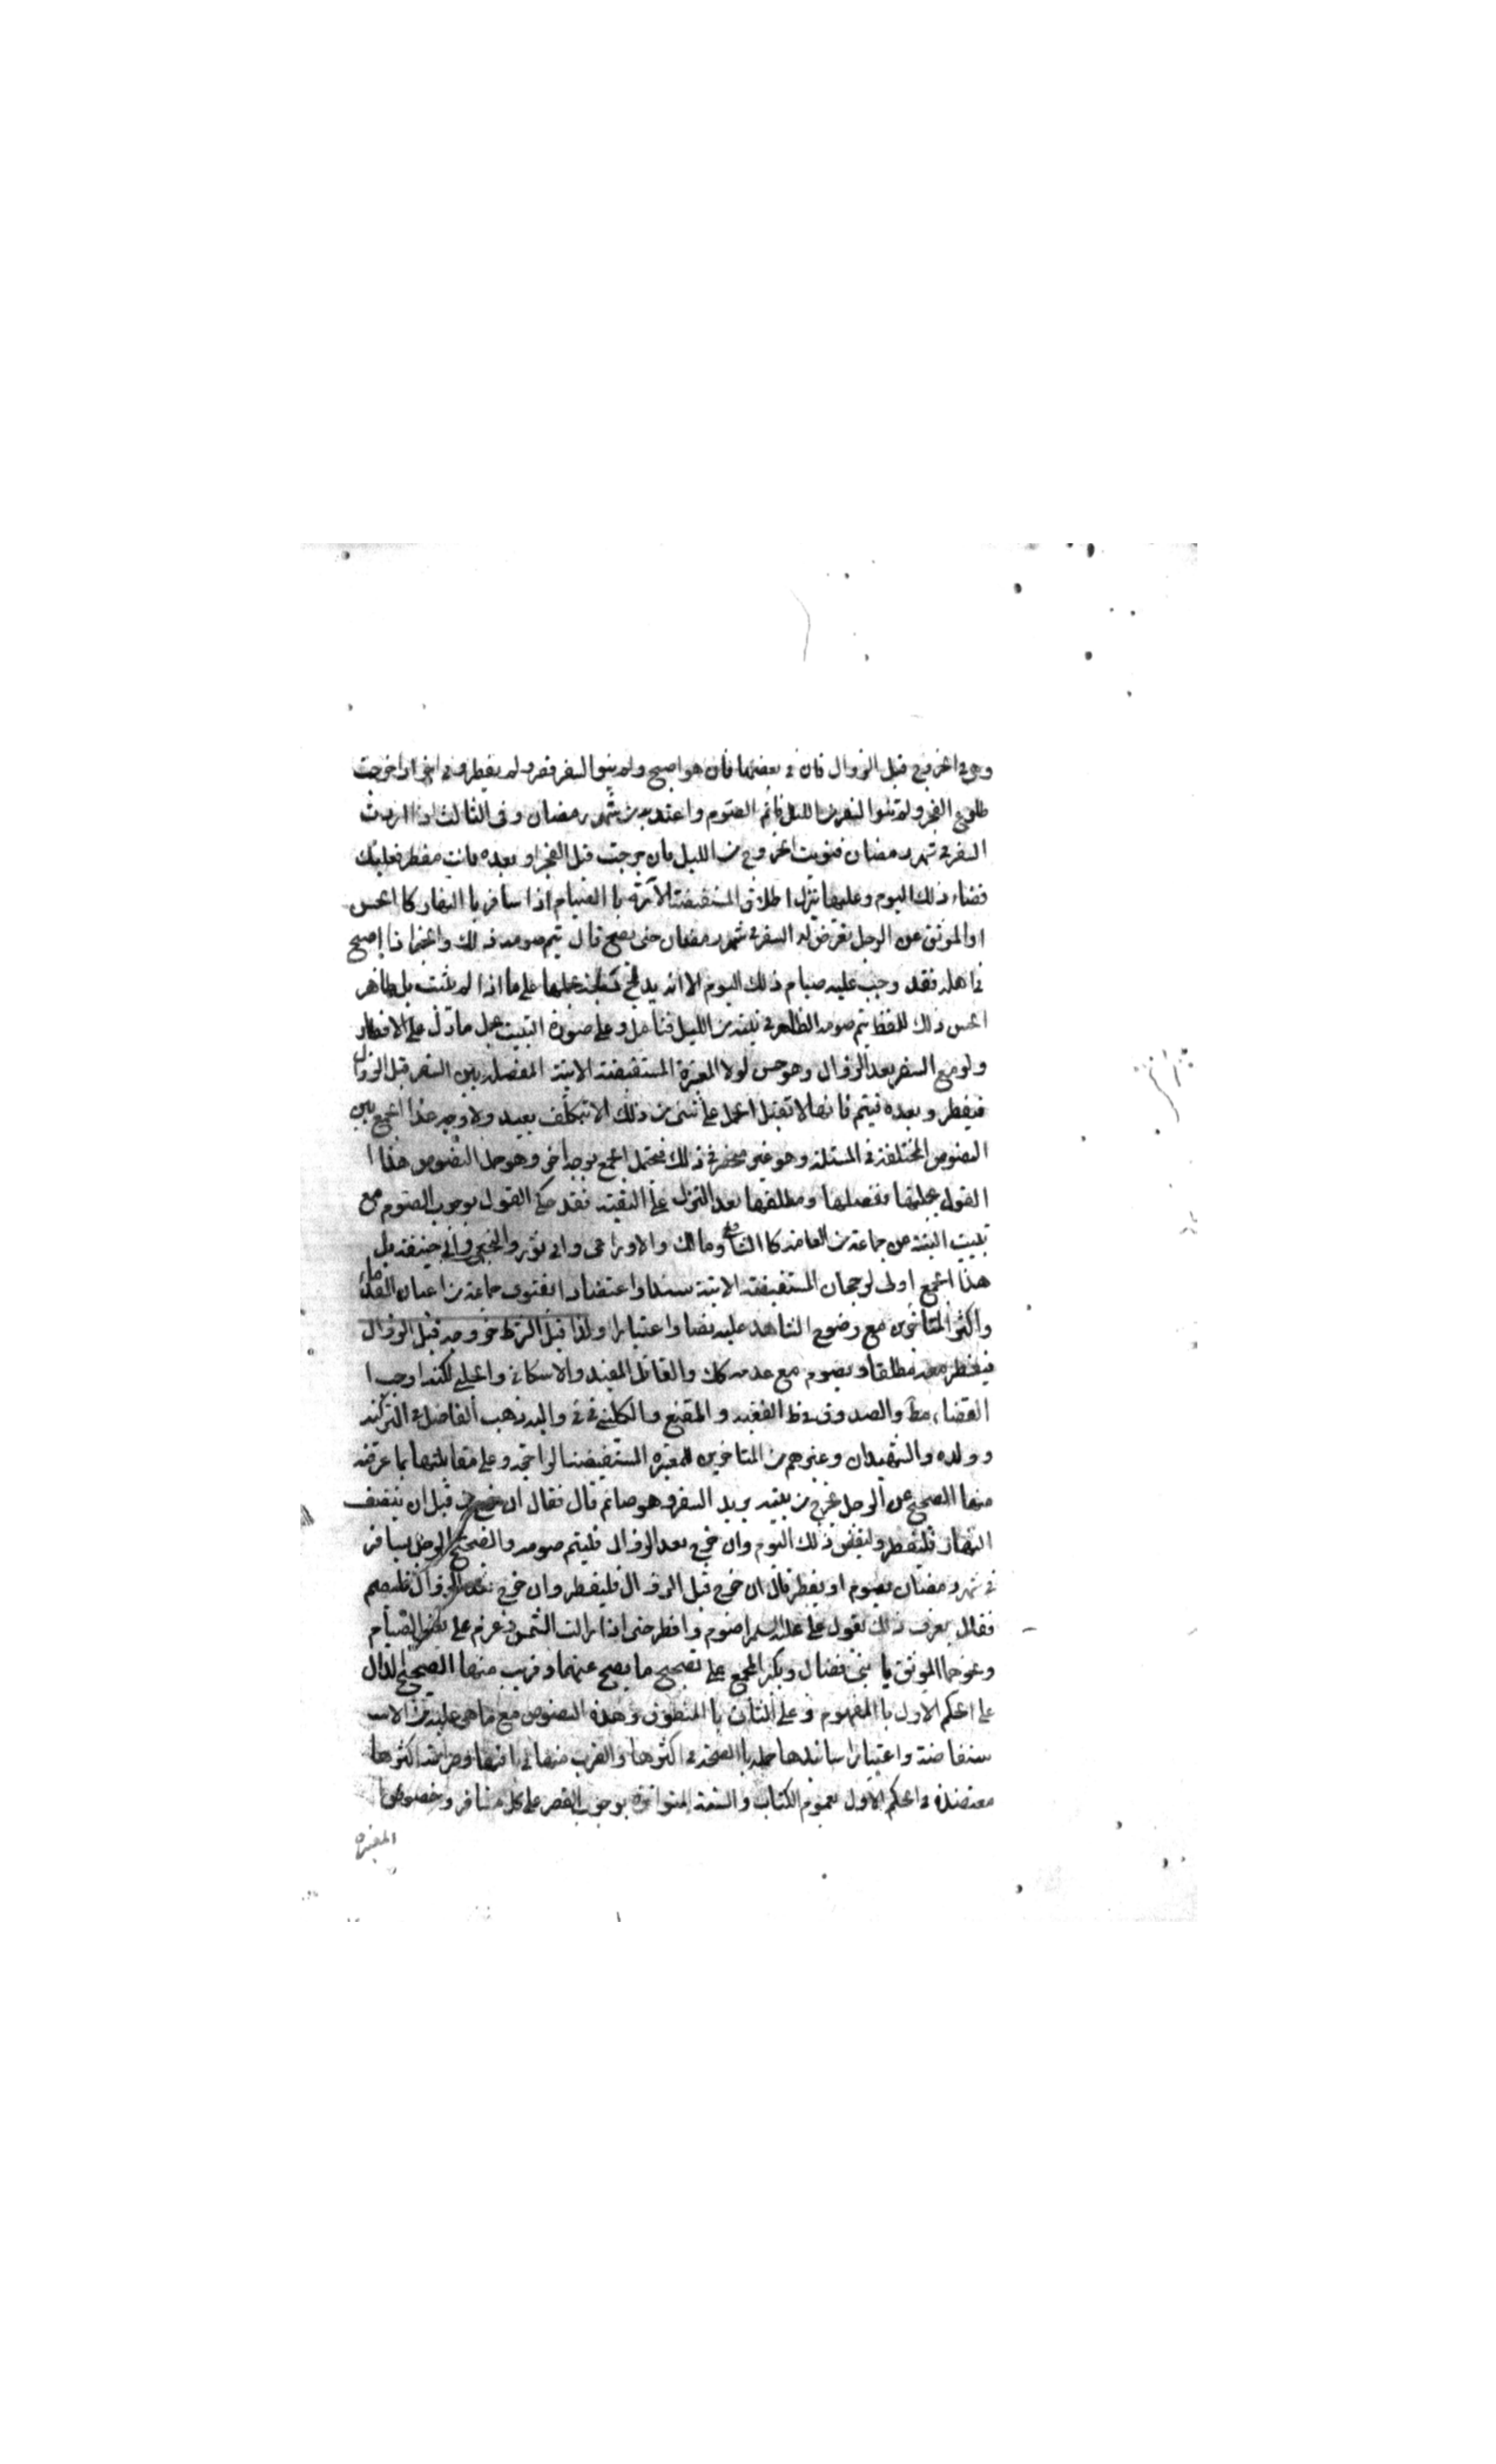 وهي الخروج قبل الزوال فان في بعضها فان هو اصبح ولم ينو السفر قصر ولم يفطر وفي اخر اذا خرجت
طلوع الفجر ولم تنو السفر من الليل فاتم الصوم واعتد به من شهر رمضان وفي الثالث اذا اردت
السفر في شهر رمضان فنويت الخروج من الليل فان خرجت قبل الفجر او بعده فانت مفطر فعليك
قضاء ذلك اليوم وعليها ينزل اطلاق المستفيضة الآمرة با الصيام اذا سافر با النهار كا الحسن
او الموثق عن الرجل يعرض له السفر في شهر رمضان حتى يصبح قال يتم صومه ذلك والخبر اذا اصبح
في اهله فقد وجب عليه صيام ذلك اليوم الا ان يدلج دلجة بحملها على ما اذا لم يثبت بل ظاهر
الحسن ذلك للفظ يتم صومه الظاهر في نيته من الليل فتامل وعلى صورة التبييت يحمل ما دل على الافطار
ولو مع السفر بعد الزوال وهو حسن لولا المعتبرة المستفيضة الاتية المفصلة بين السفر قبل الزوال
فيفطر وبعده فيتم فانها لا تقبل الحمل على شئ من ذلك الا بتكلف بعيد ولا وجه هذا الجمع بين
النصوص المختلفة في المسئلة وهو غير منحصر في ذلك فيحتمل الجمع بوجه اخر وهو حمل النصوص هذا ا
القول بجملتها مفصلها ومطلقها بعد التنزل على التقية فقد حكي القول بوجوب الصوم مع
تبييت النية عن جماعة من العامة كا الشافعي ومالك والاوزاعي وابي ثور والنخعي وابي حنيفة بل
هذا الجمع اولى لرجحان المستفيضة الاتية سندا واعتضادا بفتوى جماعة من اعيان القدماء
واكثر المتاخرين مع وضوح الشاهد عليه نصا واعتبارا ولذا قيل الشرط خروجه قبل الزوال
فيفطر معه مطلقا ويصوم مع عدمه كك والقائل المفيد والاسكافي والحلبي لكنه اوجب ا
القضاء مط والصدوق في ظ الفقيه والمقنع والكليني في في واليه ذهب الفاضل في التذكرة
وولده والشهيدان وغيرهم من المتاخرين للمعتبرة المستفيضة الراجحة وعلى مقابلتها بما عرفته
منها الصحيح عن الرجل يخرج من بيته يريد السفر وهو صائم قال فقال ان خرج قبل ان ينتصف
النهار فليفطر وليقض ذلك اليوم وان خرج بعد الزوال فليتم صومه والصحيح الرجل يسافر
في شهر رمضان يصوم او يفطر قال ان خرج قبل الزوال فليفطر وان خرج بعد الزوال فليصم
فقال يعرف ذلك بقول علي عليه السلم اصوم وافطر حتى اذا زالت الشمس عزم على يعني الصيام
ونحوهما الموثق با بني فضال وبكير المجمع على تصحيح ما يصح عنهما وقريب منها الصحيح الدال
على الحكم الاول با المفهوم وعلى الثاني با المنطوق وهذه النصوص مع ما هي عليه من الاست
ستفاضة واعتبار اسانيدها جملة با الصحة في اكثرها والقرب منها في باقيها وصراحة اكثرها
معتضدة في الحكم الاول بعموم الكتاب والسنة المتواترة بوجوب القصر على كل مسافر وخصوص
المعتبرة